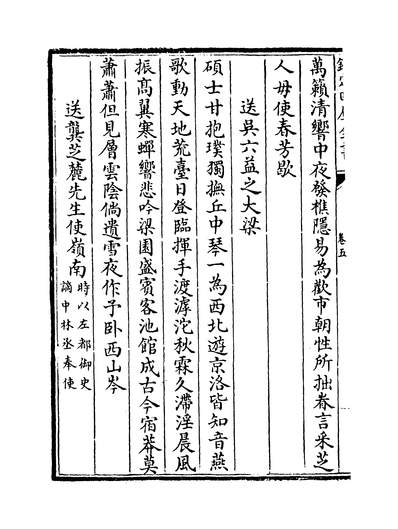 欽定四庫全書
卷五
萬籟清響中夜發樵隱易為歡市朝性所拙眷言采芝
人毋使春芳歇
送吳六益之大梁
碩士甘抱璞獨撫丘中琴一為西北遊京洛皆知音燕
歌動天地荒臺日登臨揮手渡滹沱秋霖久滯淫晨風
振髙翼寒蟬響悲吟梁園盛賓客池館成古今宿莽莫
蕭蕭但見層雲陰倘遺雪夜作予卧西山岑
送龔芝麓先生使嶺南時以左都御史
謫中林丞奉使